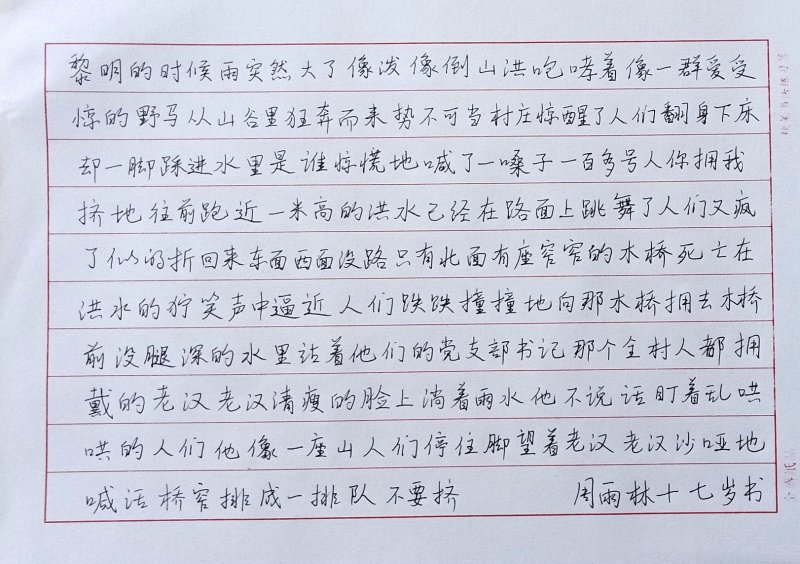 黎明的时候雨突然大了像泼像倒山洪咆哮着像一群爱受
惊的野马从山谷里狂奔而来势不可当村庄惊醒了人们翻身下床
却一脚踩进水里是谁惊慌地喊了一嗓子一百多号人你拥我
挤地往前跑近一米高的洪水已经在路面上跳舞了人们又疯
了似的折回来东面西面没路只有北面有座窄窄的木桥死亡在
洪水的狞笑声中逼近人们跌跌撞撞地向那木桥拥去木桥
前没腿深的水里站着他们的党支部书记那个全村人都拥
戴的老汉老汉清瘦的脸上淌着雨水他不说话盯着乱哄
哄的人们他像一座山人们停住脚望着老汉老汉沙哑地
喊话桥窄排成一排队不要挤 周雨林十七岁书